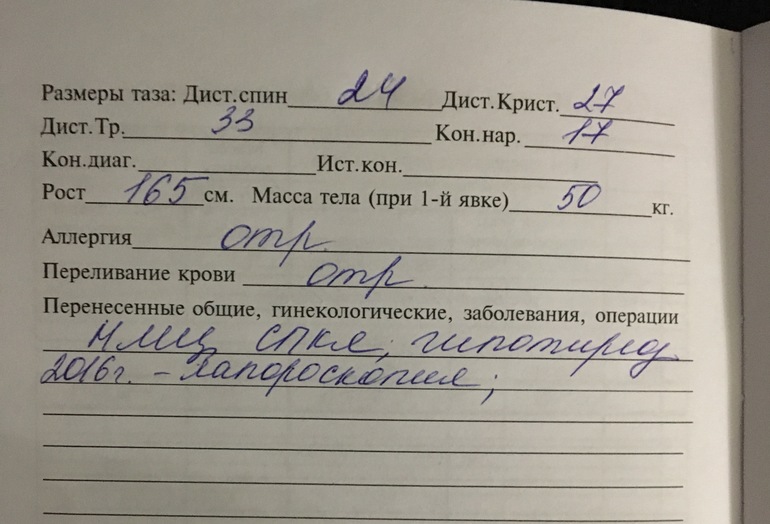 Размеры таза: Дист.спин 24 Дист.Крист. 27
Дист.Тр. 33 Кон.нар. 17
Кон.диаг. Ист.кон.
Рост 165 см. Масса тела (при 1-й явке) 50 кг.
Аллергия отр.
Переливание крови отр.
Перенесенные общие, гинекологические, заболевания, операции
НМЦ СПКЯ; гипотиреоз
2016г. - лапороскопия;